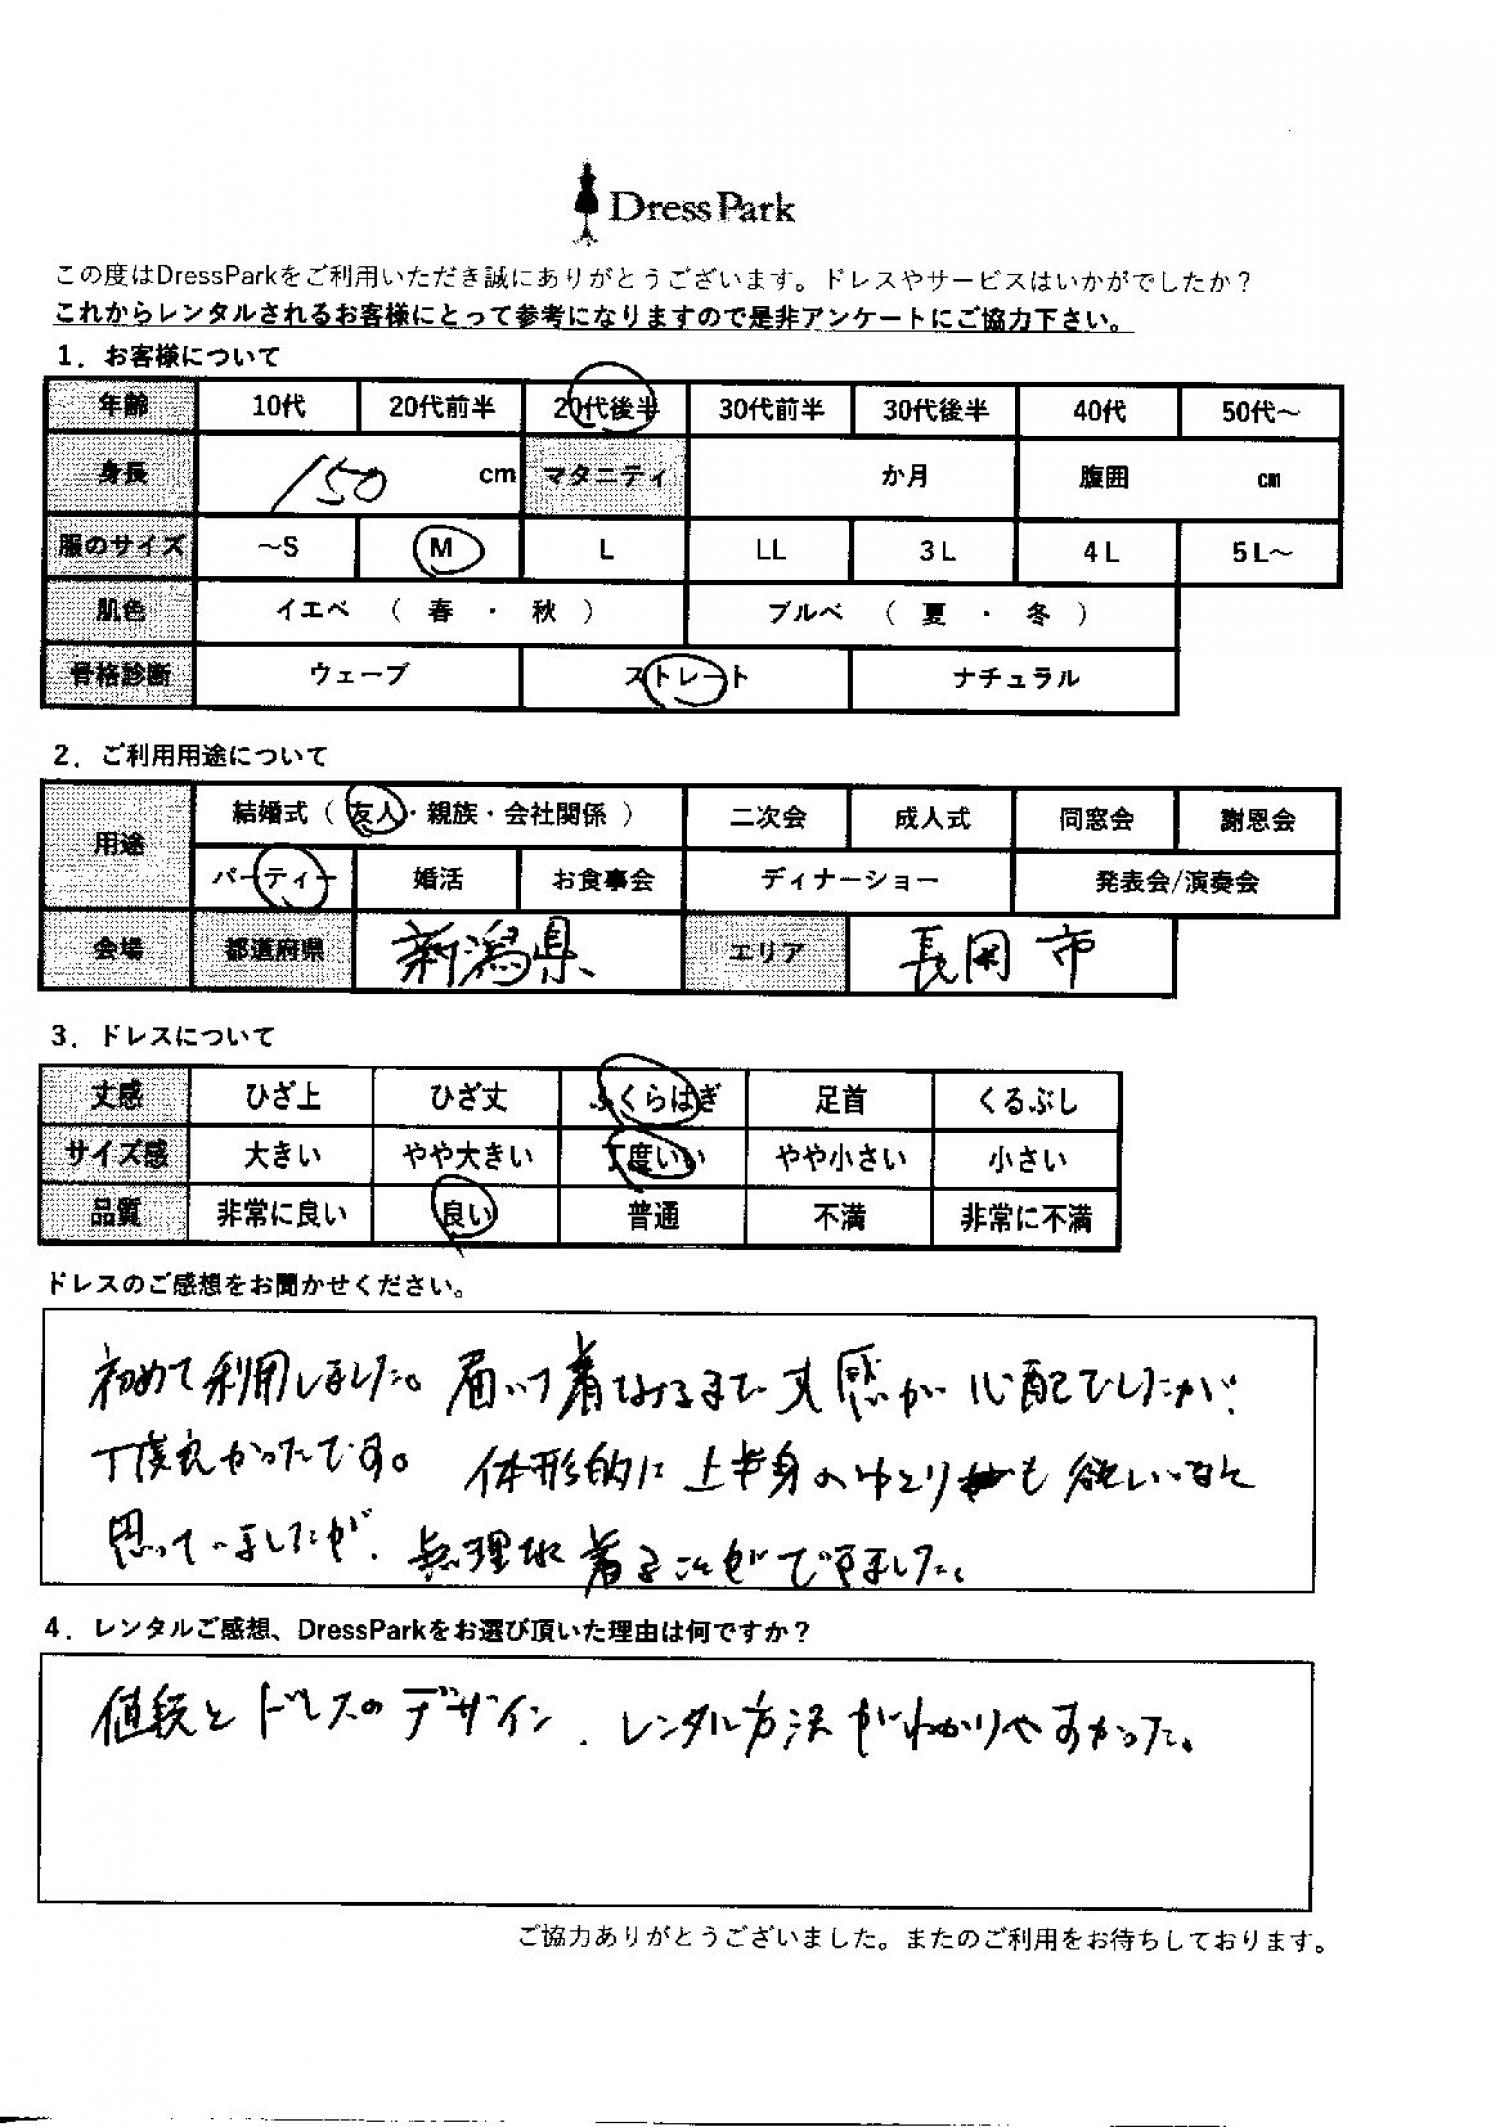 DressPark
この度はDressParkをご利用いただき誠にありがとうございます。ドレスやサービスはいかがでしたか？
これからレンタルされるお客様にとって参考になりますので是非アンケートにご協力下さい。
1．お客様について
年齢 10代 20代前半 20代後半 30代前半 30代後半 40代 50代～
身長 150 cm マタニティ か月 腹囲 cm
服のサイズ ～S M L LL 3L 4L 5L～
肌色 イエベ（ 春 ・ 秋 ） ブルベ （ 夏 ・ 冬 ）
骨格診断 ウェーブ ストレート ナチュラル
2．ご利用用途について
用途 結婚式（ 友人・親族・会社関係 ） 二次会 成人式 同窓会 謝恩会
パーティー 婚活 お食事会 ディナーショー 発表会/演奏会
会場 都道府県 新潟県 エリア 長岡市
3．ドレスについて
丈感 ひざ上 ひざ丈 ふくらはぎ 足首 くるぶし
サイズ感 大きい やや大きい 丁度いい やや小さい 小さい
品質 非常に良い 良い 普通 不満 非常に不満
ドレスのご感想をお聞かせください。
初めて利用しました。届いて着てみるまで丈感が心配でしたが、
丁度良かったです。体形的に上半身のゆとりも欲しいなと
思っていましたが、無理なく着ることができました。
4．レンタルご感想、DressParkをお選び頂いた理由は何ですか？
値段とドレスのデザイン、レンタル方法がわかりやすかった。
ご協力ありがとうございました。またのご利用をお待ちしております。